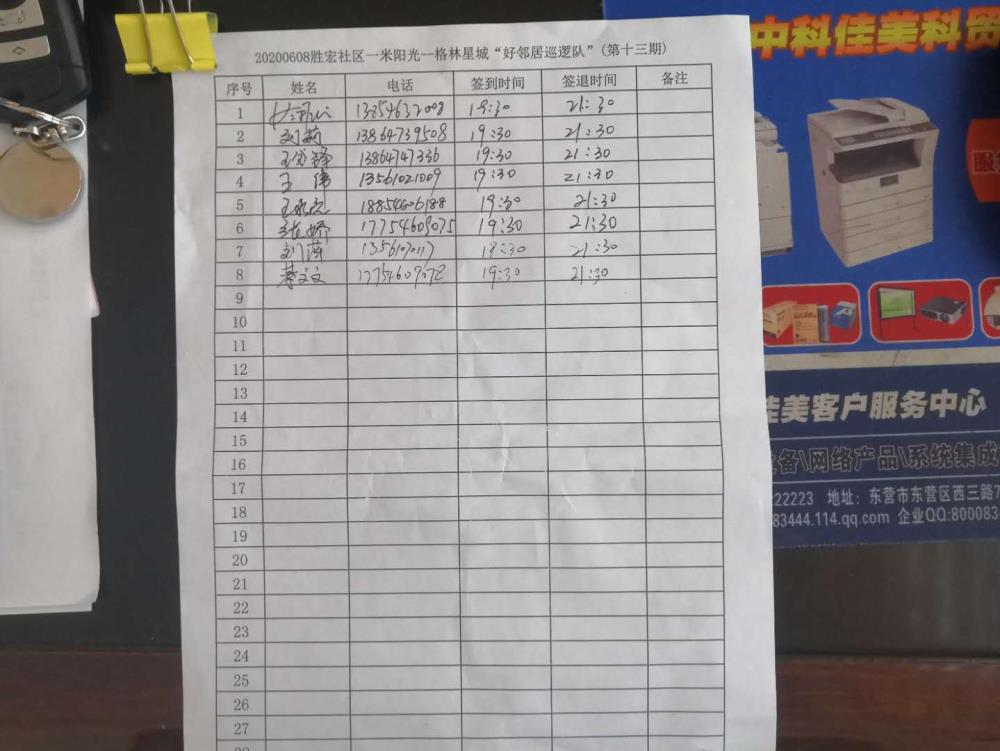 20200608胜宏社区一米阳光—格林星城“好邻居巡逻队”(第十三期)
序号 姓名 电话 签到时间 签退时间 备注
1 13854632008 19:30 21:30
2 刘莉 13864739508 19:30 21:30
3 13864747336 19:30 21:30
4 王伟 13561021009 19:30 21:30
5 18854606188 19:30 21:30
6 张娇 17754609075 19:30 21:30
7 刘萍 19:30 21:30
8 蔡文文 17754609072 19:30 21:30
9
10
11
12
13
14
15
16
17
18
19
20
21
22
23
24
25
26
27
中科佳美科贸
佳美客户服务中心
设备\网络产品\系统集成
22223 地址：东营市东营区西三路7
83444.114.qq.com 企业QQ:800083